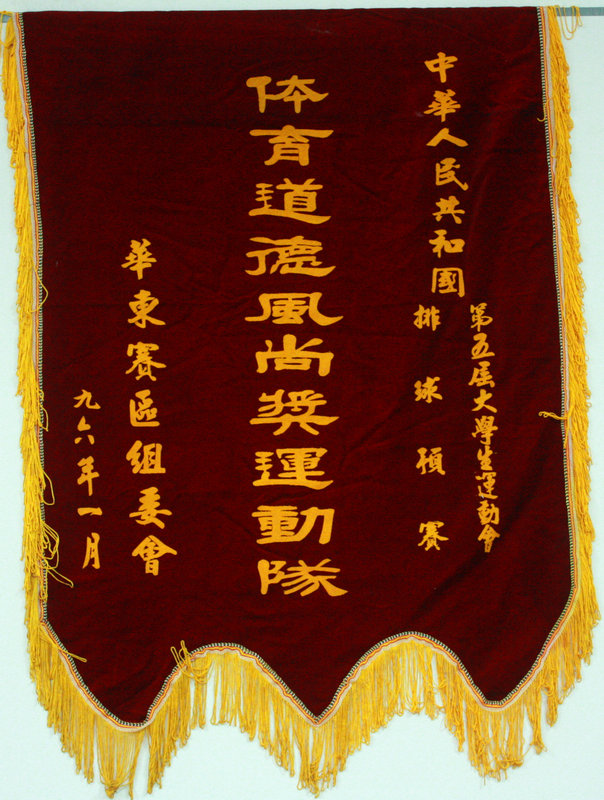 中華人民共和國
第五届大學生運動會
排球預賽
体育道德風尚獎運動隊
華東賽區組委會
九六年一月